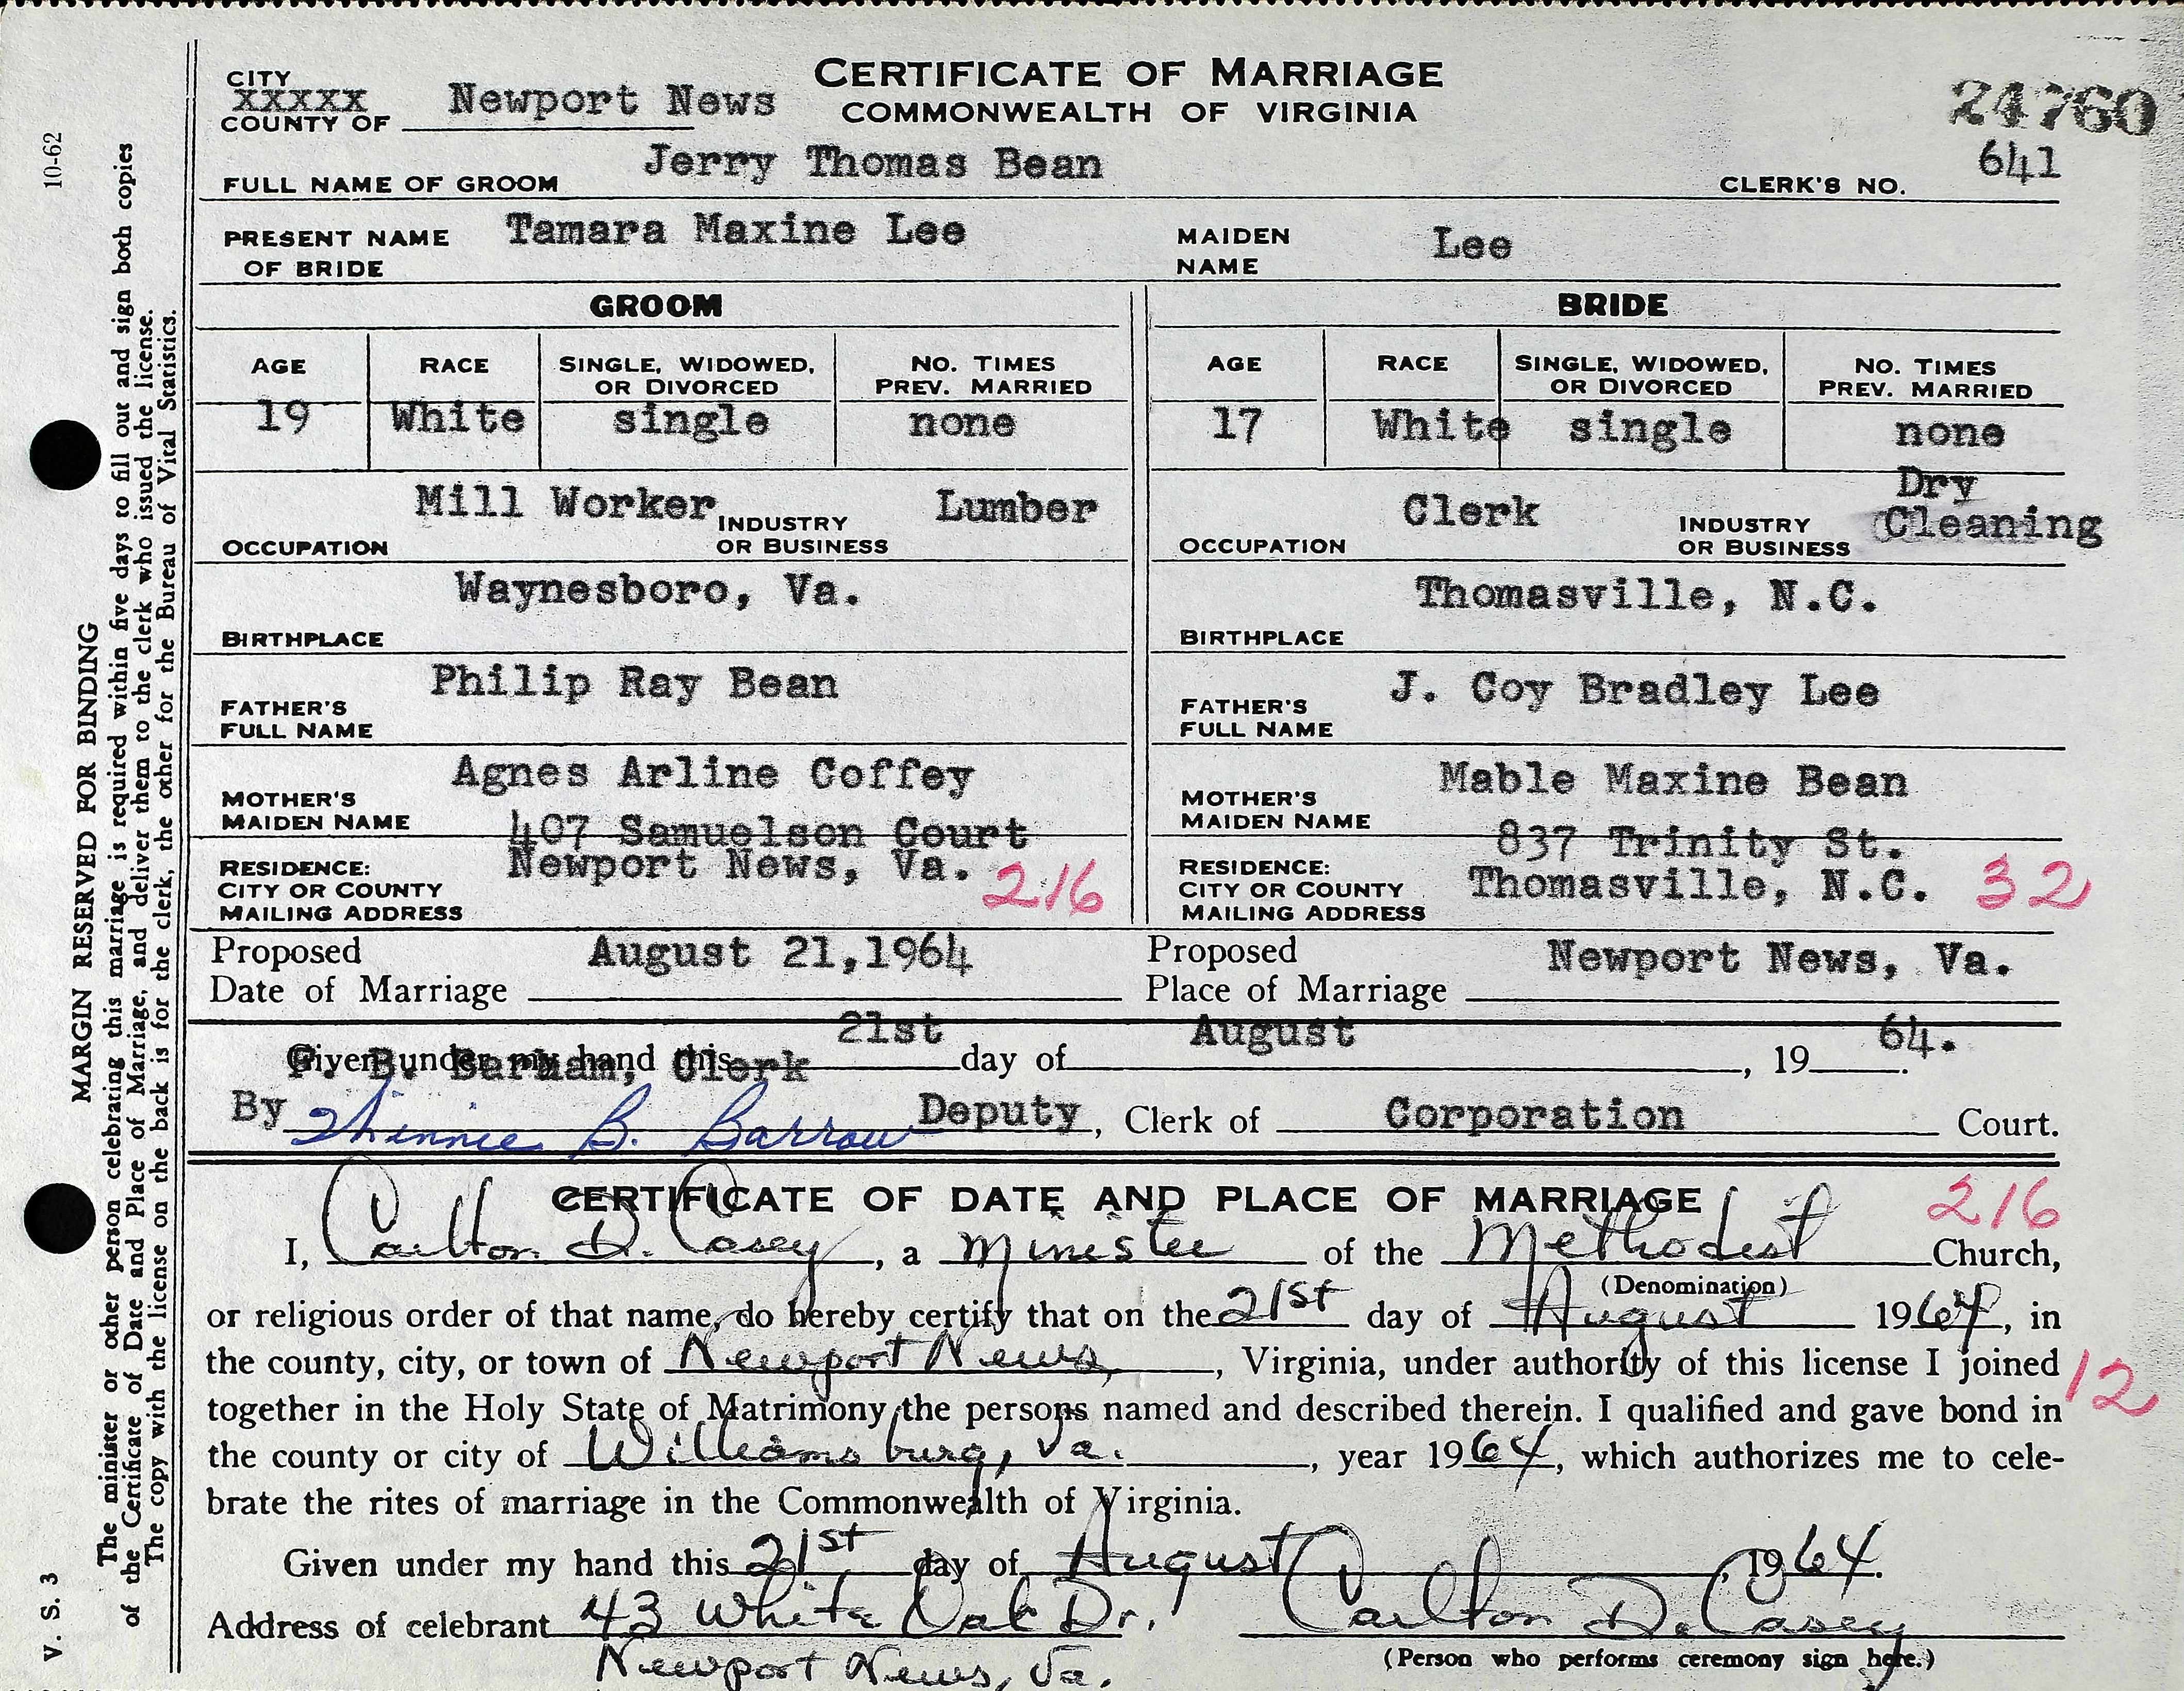 CERTIFICATE OF MARRIAGE
COMMONWEALTH OF VIRGINIA
CITY
XXXXX
COUNTY OF Newport News
24760
FULL NAME OF GROOM Jerry Thomas Bean CLERK'S NO. 641
PRESENT NAME Tamara Maxine Lee MAIDEN Lee
OF BRIDE NAME
GROOM BRIDE
AGE RACE SINGLE, WIDOWED, NO. TIMES AGE RACE SINGLE, WIDOWED, NO. TIMES
OR DIVORCED PREV. MARRIED OR DIVORCED PREV. MARRIED
19 White single none 17 White single none
Mill Worker Lumber Clerk Dry
OCCUPATION INDUSTRY OR BUSINESS OCCUPATION INDUSTRY OR BUSINESS Cleaning
Waynesboro, Va. Thomasville, N.C.
BIRTHPLACE BIRTHPLACE
Philip Ray Bean J. Coy Bradley Lee
FATHER'S FATHER'S
FULL NAME FULL NAME
Agnes Arline Coffey Mable Maxine Bean
MOTHER'S MOTHER'S
MAIDEN NAME MAIDEN NAME
407 Samuelson Court 837 Trinity St.
RESIDENCE: Newport News, Va. 216 RESIDENCE: Thomasville, N.C. 32
CITY OR COUNTY CITY OR COUNTY
MAILING ADDRESS MAILING ADDRESS
Proposed August 21,1964 Proposed Newport News, Va.
Date of Marriage Place of Marriage
Given under my hand this 21st day of August, 19 64.
B. Barham, Clerk
By Minnie B. Barrow Deputy, Clerk of Corporation Court.
CERTIFICATE OF DATE AND PLACE OF MARRIAGE 216
I, Carlton D. Casey, a Minister of the Methodist Church,
(Denomination)
or religious order of that name, do hereby certify that on the 21st day of August 1964, in
the county, city, or town of Newport News, Virginia, under authority of this license I joined 12
together in the Holy State of Matrimony the persons named and described therein. I qualified and gave bond in
the county or city of Williamsburg, Va., year 1964, which authorizes me to cele-
brate the rites of marriage in the Commonwealth of Virginia.
Given under my hand this 21st day of August, 1964.
Address of celebrant 43 White Oak Dr. Carlton D. Casey
Newport News, Va. (Person who performs ceremony sign here.)
10-62
MARGIN RESERVED FOR BINDING
The minister or other person celebrating this marriage is required within five days to fill out and sign both copies
of the Certificate of Date and Place of Marriage, and deliver them to the clerk who issued the license.
The copy with the license on the back is for the clerk, the other for the Bureau of Vital Statistics.
V. S. 3